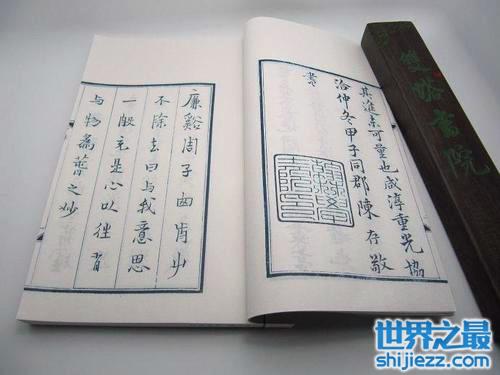 其進未可量也咸淳重光協
洽仲冬甲子同郡陳存敬
書
廉谿周子囪前艸
不除去曰与我意思
一般充是心以往皆
与物為萅之妙
雙峪書院
世界之最
shijiezz.com